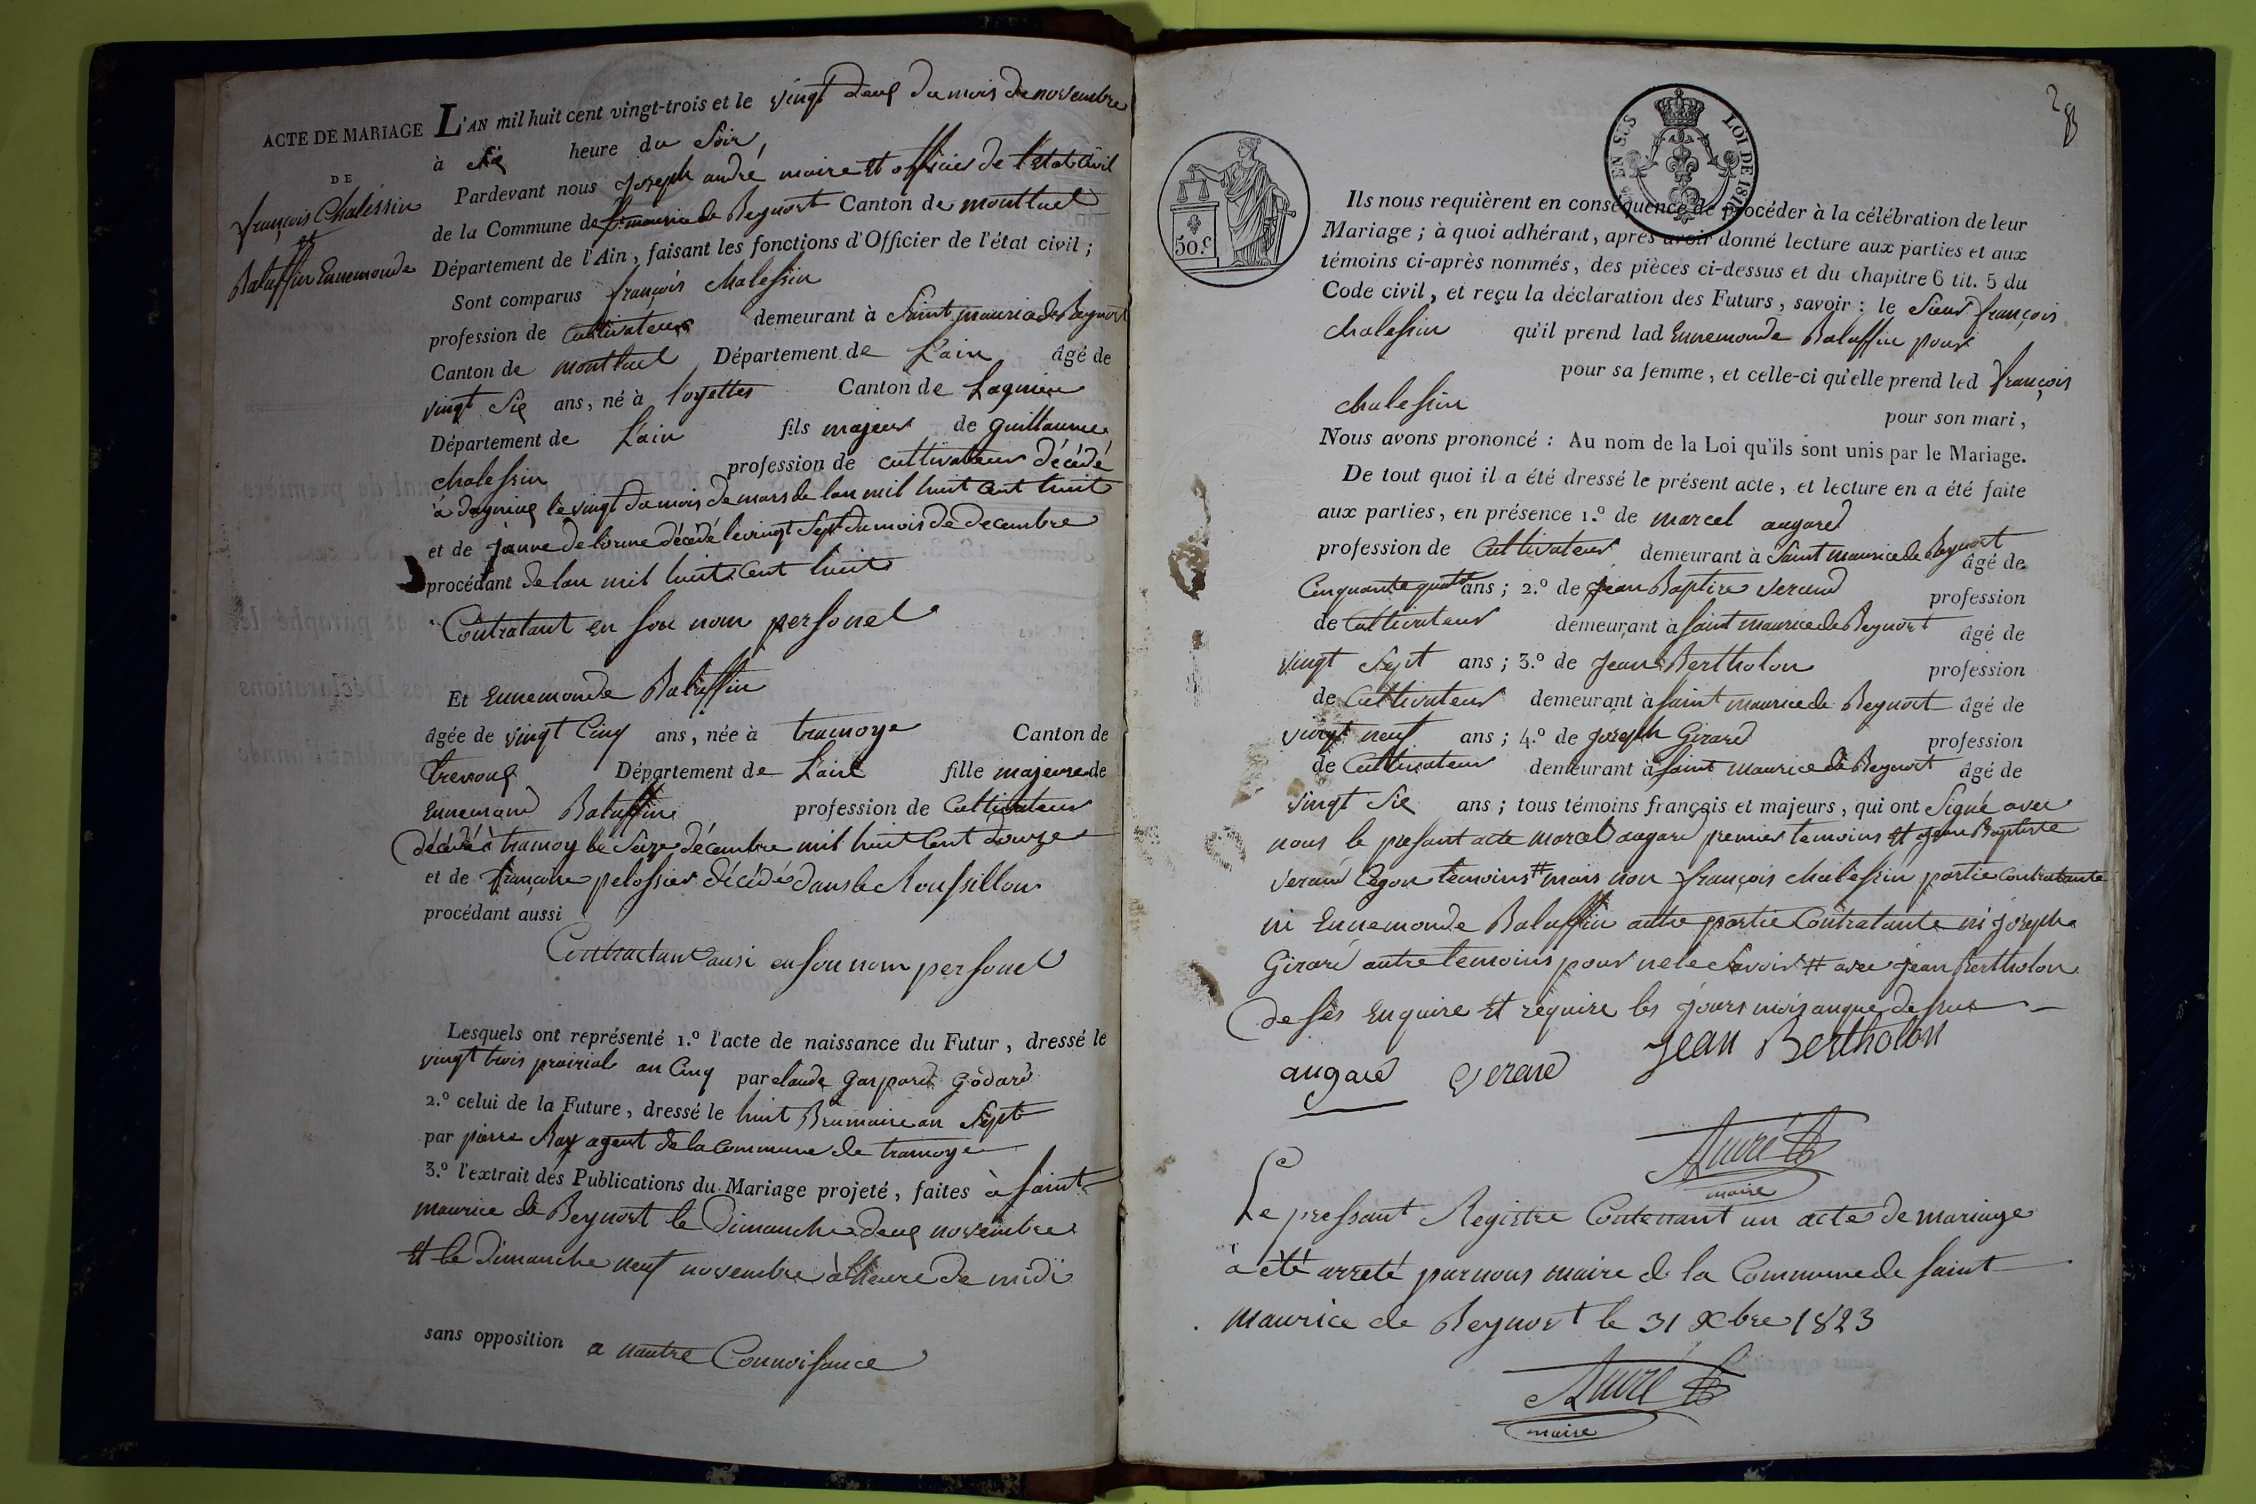 ACTE DE MARIAGE
DE
françois Chalessin
et
Baluffin Ennemonde
L'AN mil huit cent vingt-trois et le vingt deux du mois de novembre
à six heure du soir,
Pardevant nous Joseph andré maire et officier de l'état Civil
de la Commune de St maurice de Beynost Canton de montluel
Département de l'Ain, faisant les fonctions d'Officier de l'état civil ;
Sont comparus françois chalessin
profession de Cultivateur demeurant à Saint maurice de Beynost
Canton de montluel Département de L'ain âgé de
vingt six ans, né à loyettes Canton de Lagnieu
Département de L'ain fils majeur de guillaume
chalessin profession de cultivateur décédé
à dagnieux le vingt du mois de mars de lan mil huit Cent huit
et de janne delorme décédé le vingt Sept du mois de decembre
procédant de lan mil huit Cent huit
Contratant en son nom personel
Et Ennemonde Baluffin
âgée de vingt Cinq ans, née à tramoye Canton de
trevoux Département de L'ain fille majeure de
Ennemand Baluffin profession de Cultivateur
décédé à tramoy le Seize décembre mil huit Cent douze
et de françoise pelossier décédé dans le Roussillon
procédant aussi
Contractant ausi en son nom personel
Lesquels ont représenté 1.º l'acte de naissance du Futur, dressé le
vingt trois prairial an Cinq par claude gaspard godard
2.º celui de la Future, dressé le huit Brumaire an Sept
par pierre Ray agent de la commune de tramoye
3.º l'extrait des Publications du Mariage projeté, faites à Saint
maurice de Beynost le Dimanche deux novembre
et le dimanche neuf novembre à lheure de midi
sans opposition a nautre Connoissance
28
EN SUS LOI DE 1816
50.c
Ils nous requièrent en conséquence de procéder à la célébration de leur
Mariage ; à quoi adhérant, après avoir donné lecture aux parties et aux
témoins ci-après nommés, des pièces ci-dessus et du chapitre 6 tit. 5 du
Code civil, et reçu la déclaration des Futurs, savoir : le Sieur françois
chalessin qu'il prend lad Ennemonde Baluffin pour
pour sa femme, et celle-ci qu'elle prend led françois
chalessin pour son mari,
Nous avons prononcé : Au nom de la Loi qu'ils sont unis par le Mariage.
De tout quoi il a été dressé le présent acte, et lecture en a été faite
aux parties, en présence 1.º de marcel augard
profession de Cultivateur demeurant à Saint maurice de Beynost âgé de
Cinquante quatre ans ; 2.º de jean Baptire verand profession
de Cultivateur demeurant à Saint maurice de Beynost âgé de
vingt Sept ans ; 3.º de Jean Bertholon profession
de Cultivateur demeurant à Saint maurice de Beynost âgé de
vingt neuf ans ; 4.º de joseph Girard profession
de Cultivateur demeurant à Saint maurice de Beynost âgé de
vingt Six ans ; tous témoins français et majeurs, qui ont Signé avec
nous le presant acte marcel augard premier temoins et jean Baptiste
verand Segon temoins # mais non françois chalessin partie contratante
ni Ennemonde Baluffin autre partie Contratante ni joseph
Girard autre temoins pour ne le Savoir # avec jean Bertholon
de ses enquire et require les jours mois anque dessus
augard verand Jean Bertholon
André
maire
Le pressant Registre Contenant un acte de mariage
à été arreté par nous maire de la Commune de Saint
Maurice de Beynost le 31 Xbre 1823
André
maire